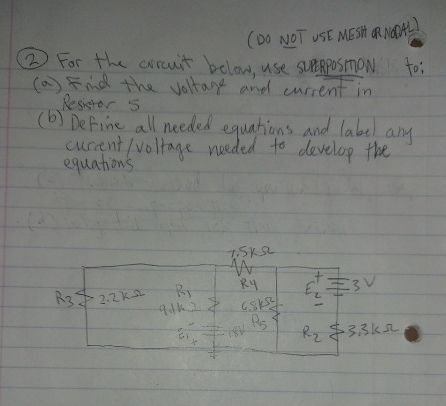 (DO NOT USE MESH OR NODAL)
② For the circuit below, use SUPERPOSITION to:
(a) Find the voltage and current in
Resistor 5
(b) Define all needed equations and label any
current/voltage needed to develop the
equations
7.5KΩ
R4
R3 2.2KΩ
R1
6.8KΩ
R5
E1
18V
E2 + 3V
-
R2 3.3KΩ